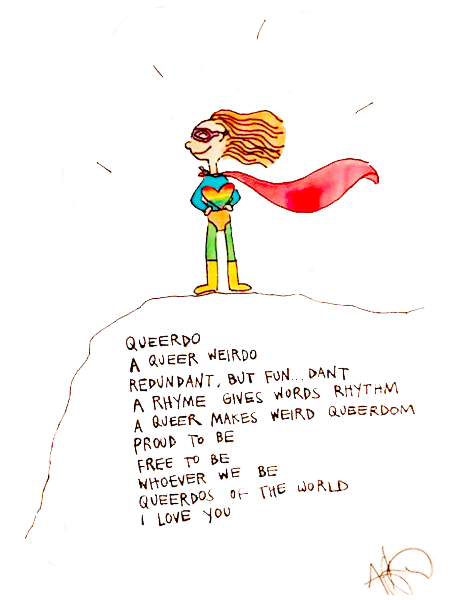 QUEERDO
A QUEER WEIRDO
REDUNDANT, BUT FUN...DANT
A RHYME GIVES WORDS RHYTHM
A QUEER MAKES WEIRD QUEERDOM
PROUD TO BE
FREE TO BE
WHOEVER WE BE
QUEERDOS OF THE WORLD
I LOVE YOU